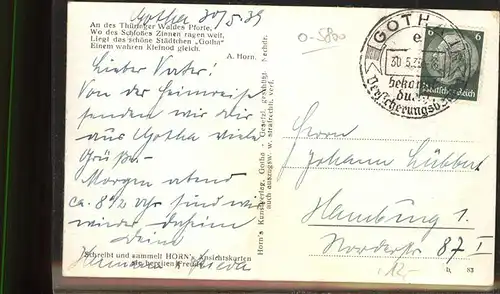 Gotha 30/5.39
An des Thüringer Waldes Pforte,
Wo des Schloßes Zinnen ragen weit,
Liegt das schöne Städtchen „Gotha“
Einem wahren Kleinod gleich.
A. Horn.
Lieber Vater!
Von der Heimreise
senden wir dir
aus Gotha viele
Grüße.
Morgen abend
ca. 8 1/2 Uhr sind wir
wieder daheim
Deine
Schreibt und sammelt HORN's Ansichtskarten
sie bereiten Freude
Horn's Kunstverlag, Gotha - Gesetzl. geschützt. Nachdr.
auch auszugsw. w. strafrechtl. verf.
0-5800
GOTHA
e
30.5.39
bekannt
durch
Versicherungsb
6 6
Deutsches Reich
Herrn
Johann Lübbert
Hamburg 1.
Norderstr 87 I
12.-
b. 83